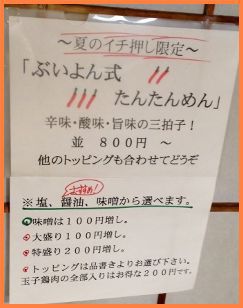 ～夏のイチ押し限定～
「ぶいよん式
たんたんめん」
辛味・酸味・旨味の三拍子！
並 ８００円 ～
他のトッピングも合わせてどうぞ
おすすめ!
※塩、醤油、味噌から選べます。
味噌は１００円増し。
大盛り１００円増し。
特盛り２００円増し。
トッピングは品書きよりお選び下さい。
玉子鶏肉の全部入りはお得な２００円です。